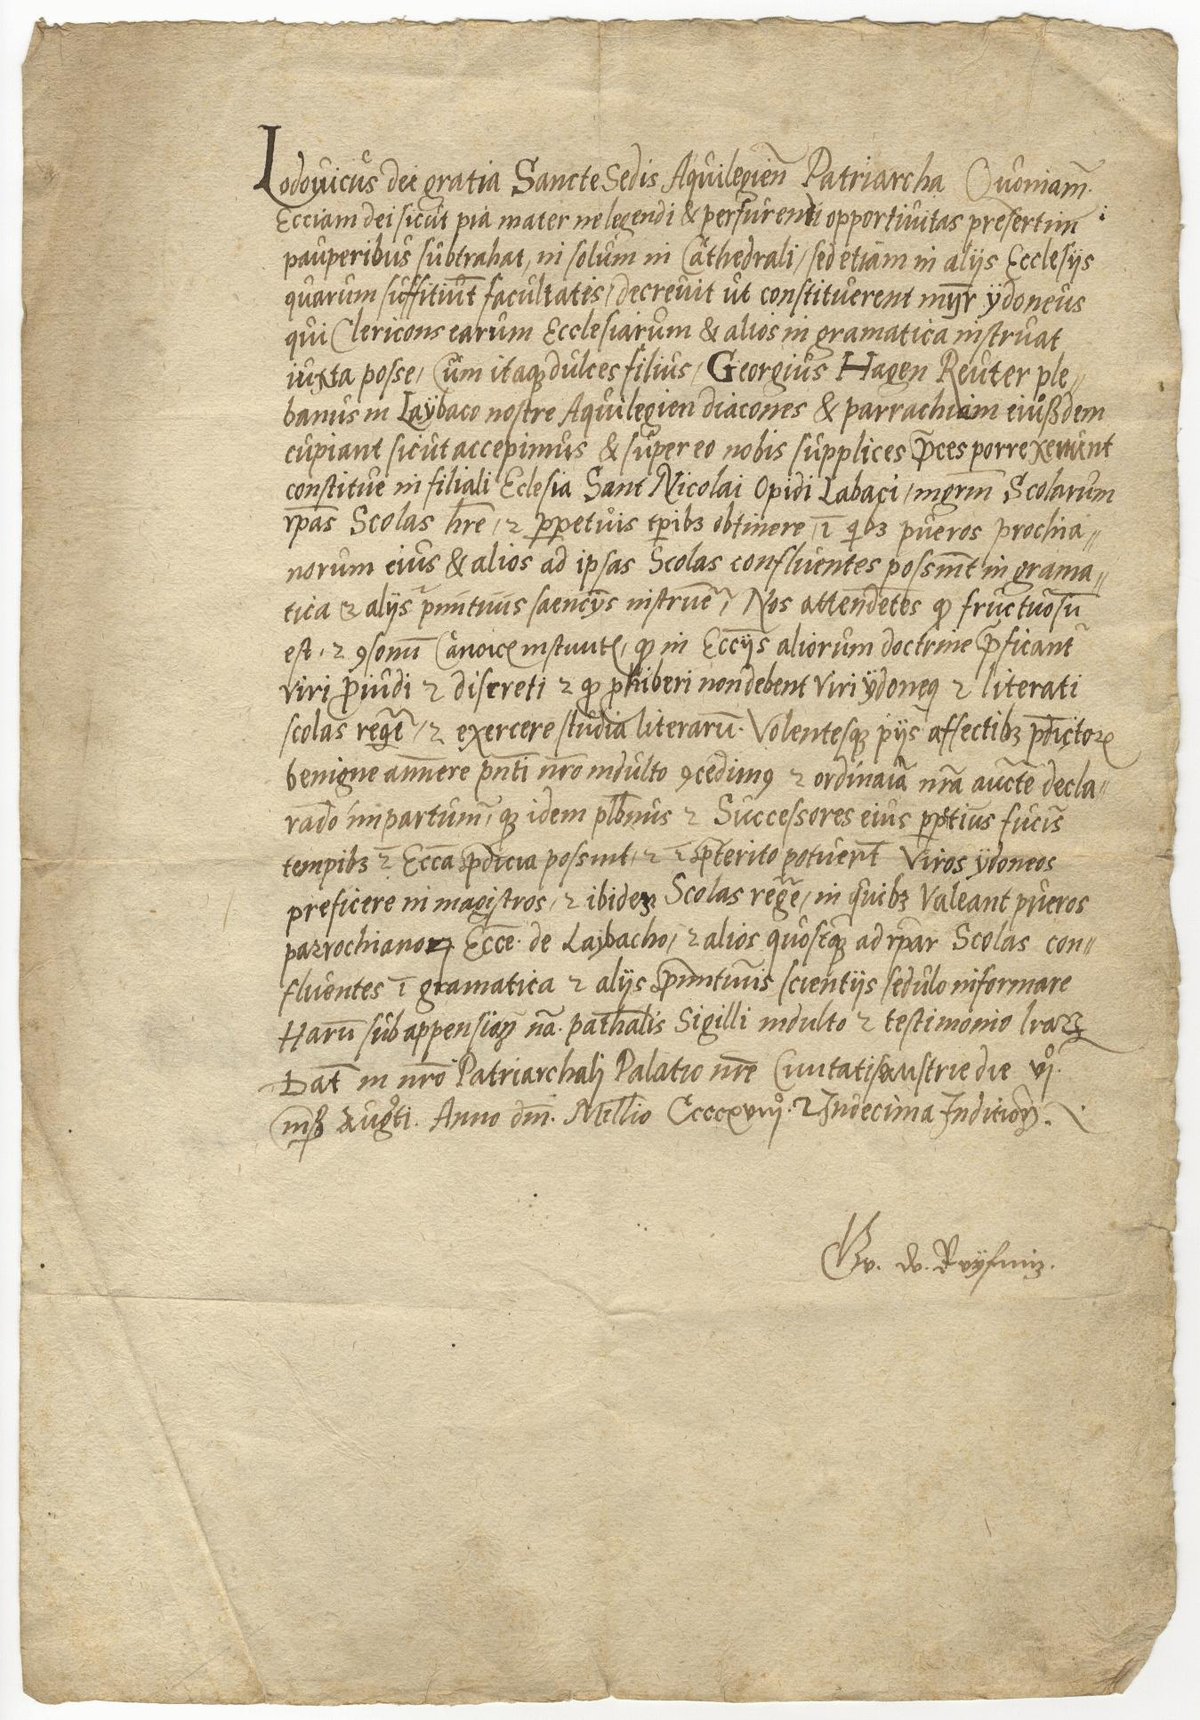 Lodovicus dei gratia Sancte Sedis Aquilegien̄ Patriarcha Quoniam̄
Ecciam dei sicut pia mater ne legendi & perfurendi opportivitas presertim
pauperibus subtrahat, ni solum in Cathedrali / sed etiam in alijs Ecclesijs
quarum suffitiūt facultates / decrevit ut constituerent mgr̄ ÿdoneus
qui Clericons earum Ecclesiarum & alios in gramatica instruat
iuxta posse / Cum itaq dulces filius / Georgius Hagen Reuter ple„
banus in Laybaco nostre Aquilegien diacones & parrachiam eiußdem
cupiant sicut accepimus & super eo nobis supplices p̄ces porrexerunt
constitue in filiali Eclesia Sant Nicolai Opidi Labaci / mgrm̄ Scolarum
rp̄as Scolas hr̄e / et pp̄etuis tp̄ibꝫ obtinere / ī qibꝫ pueros prochia„
norum eius & alios ad ipsas Scolas confluentes possint in grama„
tica et alijs saencijs instrue / Nos attendetes qp fructuosū
est / et Canoice / qp in Ecc̄ijs aliorum doctrine p̄ficant
viri p̄vudi et discreti et qp phiberi non debent viri ÿdoneq et literati
scolas reg̃e / et exercere studia literarū. Volentesqꝫ pijs affectibꝫ p̄dictoꝝ
benigne annere pn̄ti nr̄o indulto ꝯcedimꝯ et ordinaiā nr̄a auct̄e decla„
rado impartum / qꝫ idem plb̄nus et Successores eius fucis̄
tempibꝫ ī Ecc̄a p̄dicia possint / et ī p̄terito potuerūt Viros ÿdoneos
preficere in magistros / et ibideꝫ Scolas reg̃e / in quibꝫ Valeant pueros
parrochianoꝝ Ecc̄e de Laybacho / et alios quostqꝫ ad rp̄ar Scolas con„
fluentes ī gramatica et alijs scientijs sedulo informare
Harū sub appension̄ nr̄a pat̄halis Sigilli indulto et testimonio lraꝝ
Dat̄ in nr̄o Patriarchalj Palatio nr̄e Civitatis Austrie die vj°.
Augti. Anno dm̄. Mll̄io Ccccxviij°. Undecima Inditioñ.